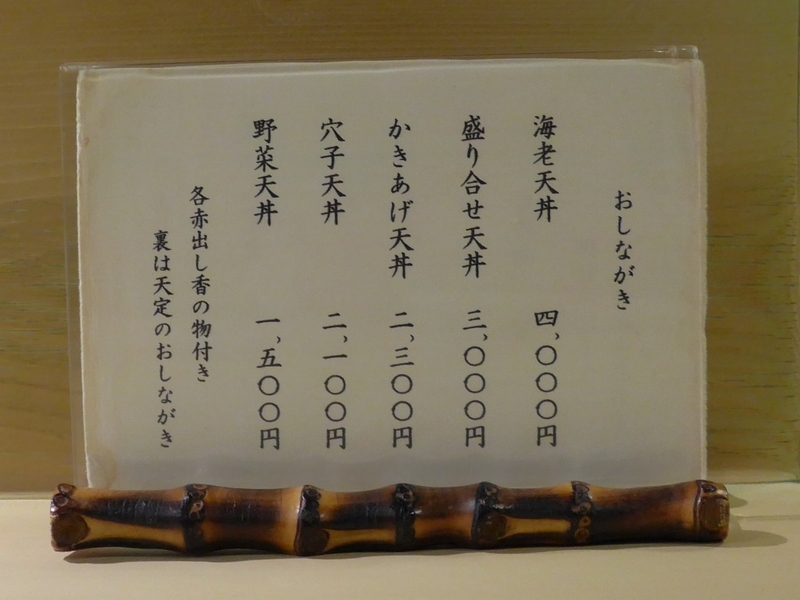 おしながき
海老天丼 四、〇〇〇円
盛り合せ天丼 三、〇〇〇円
かきあげ天丼 二、三〇〇円
穴子天丼 二、一〇〇円
野菜天丼 一、五〇〇円
各赤出し香の物付き
裏は天定のおしながき